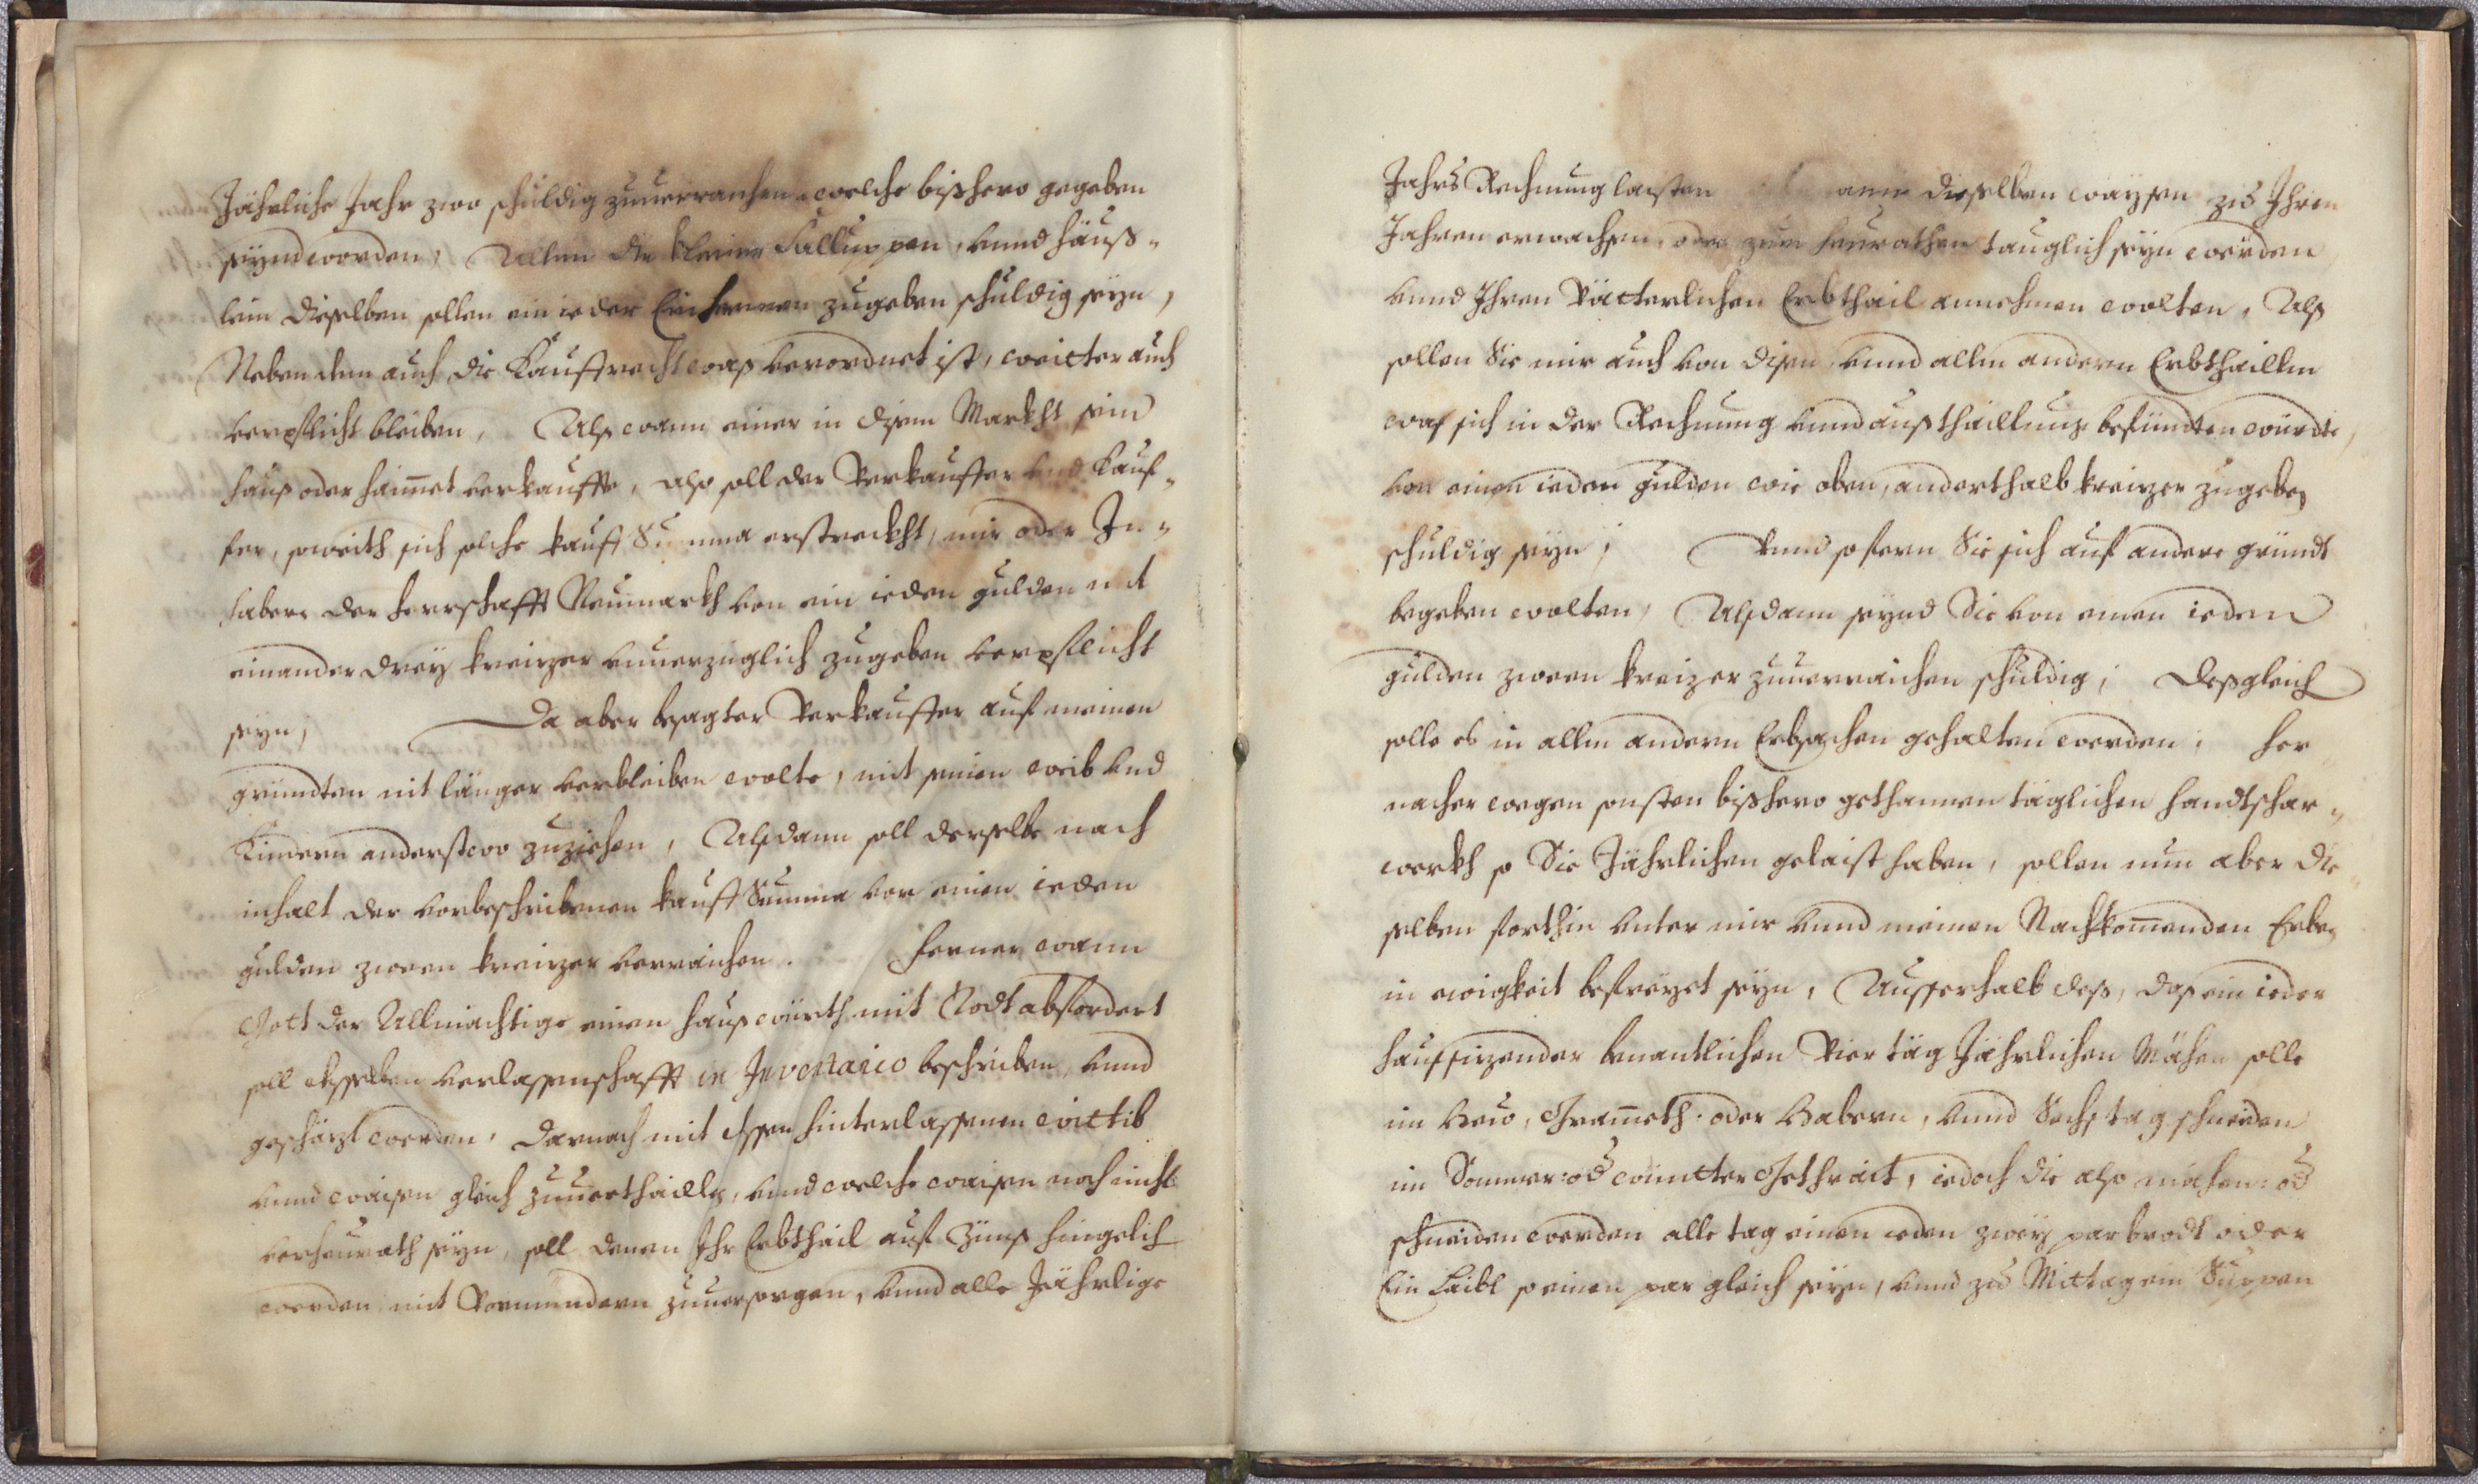 Jährliche Jahr zwo schuldig zuuerraichen welche bißhero gegeben
seÿnd worden, Allein die kleine Falluppen, vnnd häuß-
lein dieselben sollen ein ieder Ein hennen zugeben schuldig seÿn,
Neben dem auch die Kauffrecht waß verordnet ist, weitter auch
verpflicht bleiben, Alß wann einer in disem Markht sein
hauß oder haimet verkauffte, also soll der Verkauffer vnd Kauf-
fer, soweith sich solche kauff Summa erstreckht, mir oder In-
haber der herrschafft Neumarkh von ein ieden gulden mit
einander dreÿ kreizer vnuerzüglich zugeben verpflicht
seÿn, Da aber besagter Verkauffer auf meinen
gründten nit länger verbleiben wolte, mit seinen weib vnd
Kindern anderstwo zuziehen, Alßdann soll derselbe nach
inhalt der vorbeschribenen kauff Summa von einen ieden
gulden zween kreizer verraichen. Ferner wann
Gott der Allmächtige einen haußwürth mit Todt abfordert
soll desselben verlassenschafft in Inventario beschriben, vnnd
geschäzt werden, Darnach mit dessen hinterlassenen wittib
vnnd waisen gleich zuuerthaillen, vnnd welche waisen noch nicht
verheurath seÿn, soll denen Ihr Erbthail auf Zünß hingelich
werden mit Vormundern zuuersorgen, vnnd alle Jährlige
Jahrs Rechnung laisten dieselben waÿsen zu Ihren
Jahren erwachsen, oder zum heurathen tauglich seÿn werden
vnnd Ihren Vätterlichen Erbthail annehmen wolten, Alß
sollen Sie mir auch von disen vnnd allen andern Erbthaillen
waß sich in der Rechnung vnnd außthaillung befündten würdte,
von einen ieden gulden wie oben, anderthalb kreizer zugeben
schuldig seÿn, Vnnd sofern Sie sich auf andere gründt
begeben wolten, Alßdann seÿnd Sie von einen ieden
gulden zween kreizer zuuerraichen schuldig, Deßgleich
solle es in allen andern Erbsachen gehalten werden, her
nacher wegen sonsten bißhero gethannen täglichen handtschar-
werkh so Sie Jährlichen gelaist haben, sollen nun aber die
selben forthin vnter mir vnnd meinen Nachkommenden Erben
in ewigkeit befreÿet seÿn, Ausserhalb deß, daß ein ieder
haußsizender benantlichen Vier täg Jährlichen Mähen solle
im Heu, Grameth: oder Habern, vnnd Sechs tag schneiden
im Sommer: od wintter Gethrait, iedoch die also mähen: od
schneiden werden alle tag einen ieden zweÿ par brodt oder
Ein Laibl so einen par gleich seÿn, vnnd zu Mittag ein Suppen